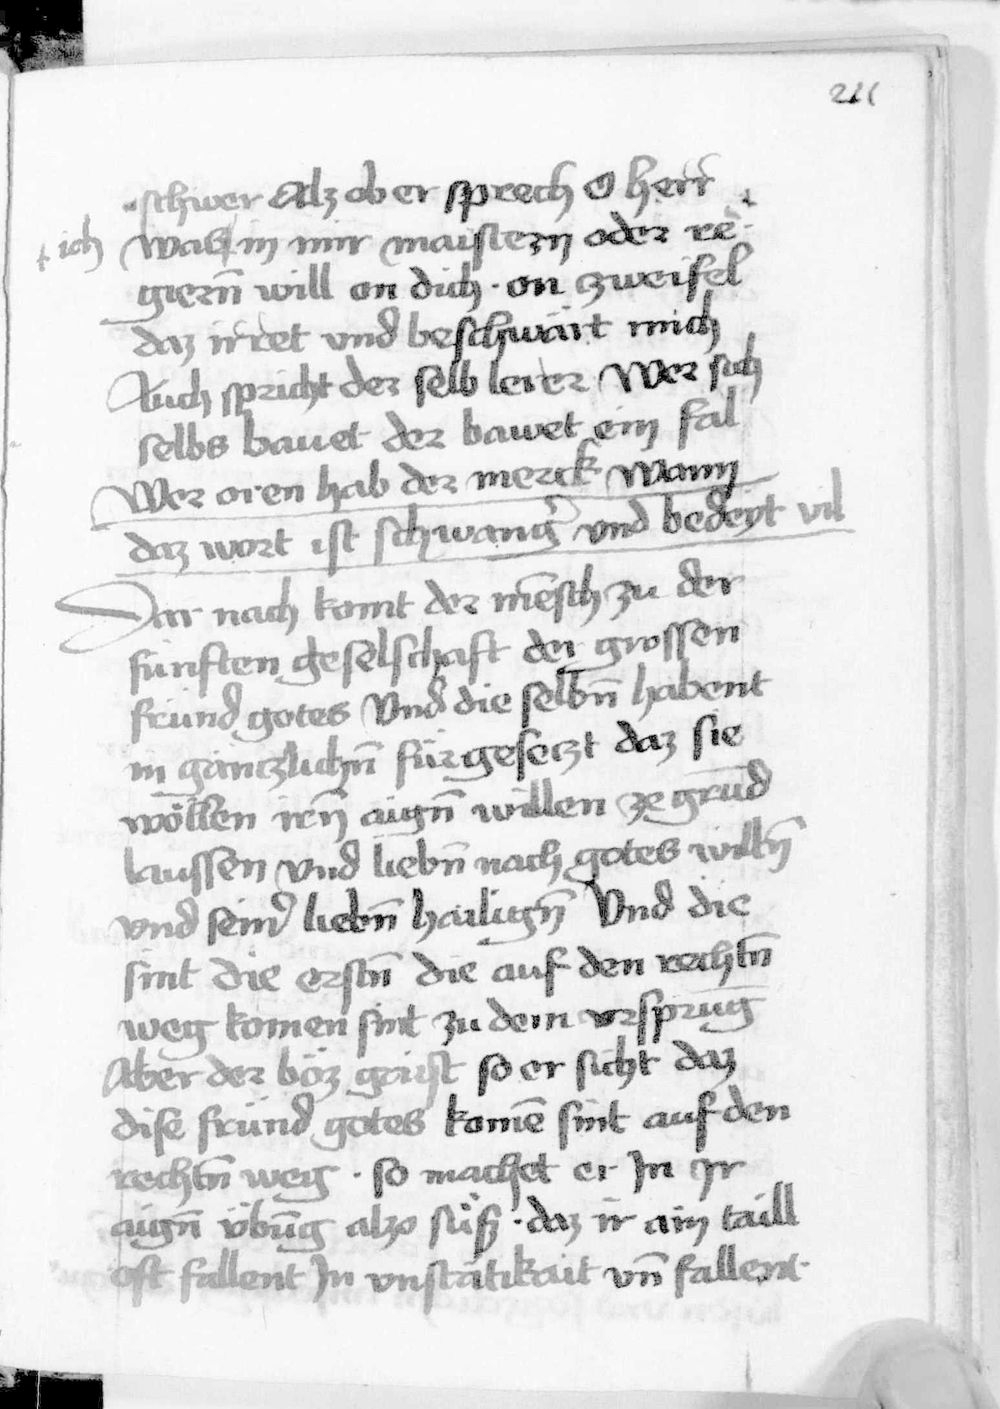 211
schwer Alz ob er sprech O herr
ich was in mir maistern oder re-
giern̄ will on dich · on zweifel
daz irret vnd beschwärt mich
Auch spricht der selb lerer Wer sich
selbs bauet der bawet ein fal
Wer oren hab der merck Wann
daz wort ist schwanḡ vnd bedeyt vil
Dar nach komt der mēsch zu der
fünften geselschaft der grossen
fründ gotes Vnd die selbn̄ habent
in gäntzlichn̄ für gesetzt daz sie
wöllen irn̄ aign̄ willen ze grūd
laussen vnd liebn̄ nach gotes willn̄
vnd sein̄ liebn̄ hailign̄ Vnd die
sint die erstn̄ die auf den rechtn̄
weg komen sint zu dem vrsprūg
Aber der böz gaist so er sicht daz
dise fründ gotes komē sint auf den
rechtn̄ weg · so machet er In Ir
aign̄ übūg alzo süß · daz ir ain taill
oft fallent In vnstätikait vn̄ fallent